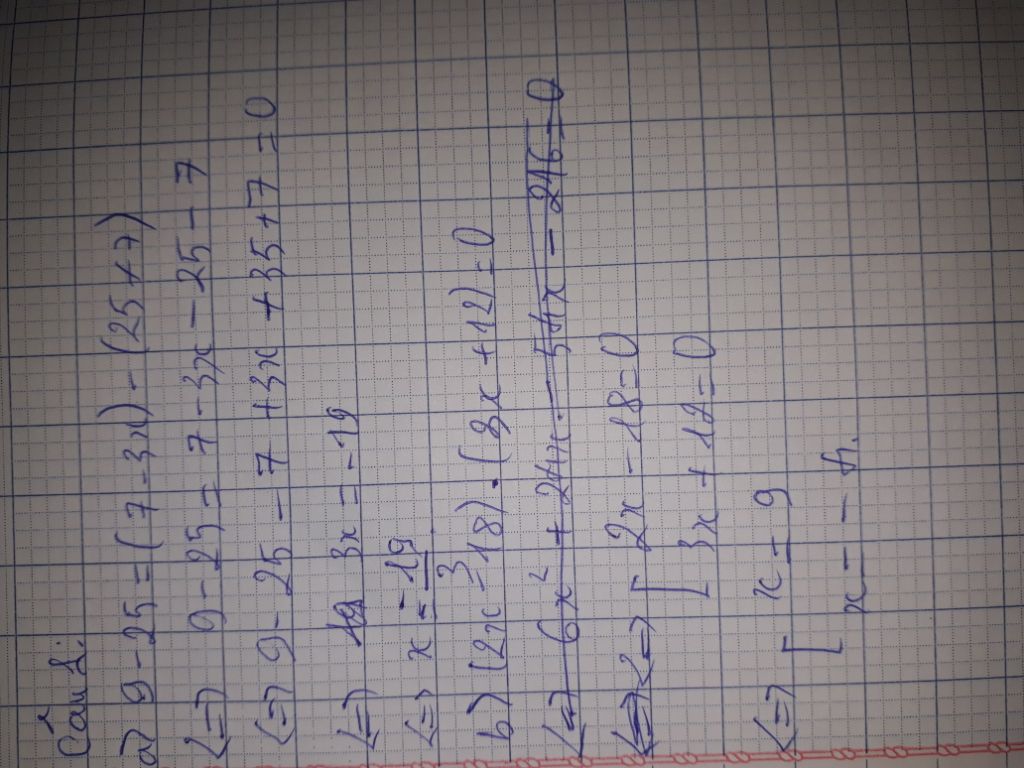 Câu 1:
a) 9 - 25 = (7 - 3x) - (25 + 7)
<=> 9 - 25 = 7 - 3x - 25 - 7
<=> 9 - 25 - 7 + 3x + 35 + 7 = 0
<=> 3x = -19
<=> x = -19/3
b) (2x - 18) . (3x + 12) = 0
<=> 6x² + 24x - 54x - 216 = 0
<=> [ 2x - 18 = 0
[ 3x + 12 = 0
<=> [ x = 9
[ x = - 4.